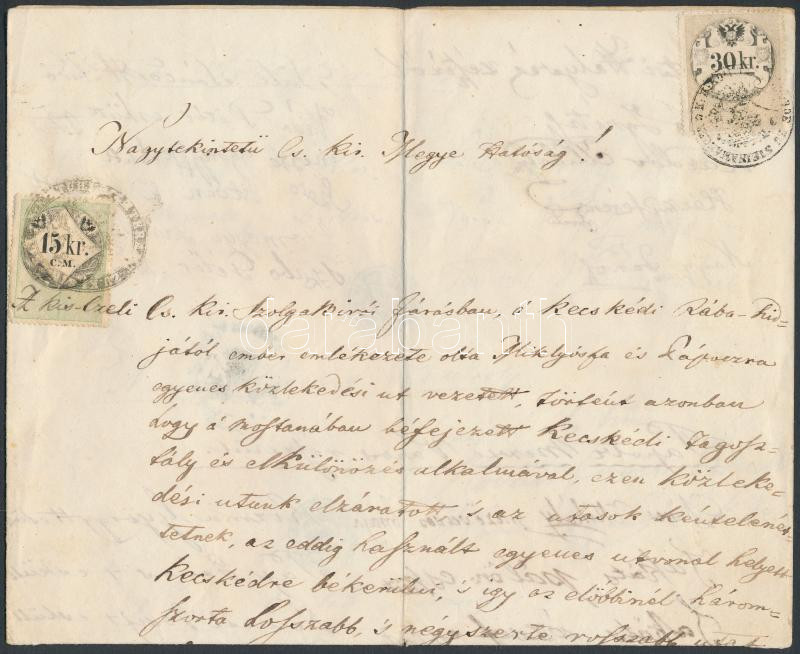 30 kr.
Nagytekintetü Cs. kir. Megye Hatóság!
15 kr.
C.M.
A kis-Czeli Cs. kir. Szolgabirói Járásban, á Kecskédi Rába-hid-
jától, ember emlékezete olta Miklyósfa és Pápoczra
egyenes közlekedési ut vezetett, történt azonban
hogy á mostanában béfejezett Kecskédi tagosz-
tály és elkülönözés alkalmával, ezen közleke-
dési utunk elzáratott, 's az utasok kéntelenét-
tetnek, az eddig használt egyenes utvonal helyett
Kecskédre békerülni, 's igy az elöbbinél három-
szorta hosszabb, 's négyszerte rosszabb utat